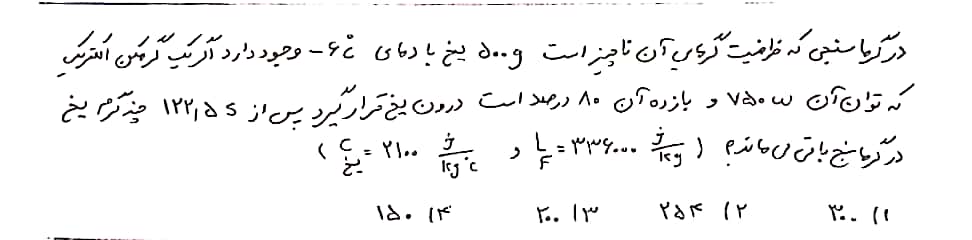 در گرماسنجی که ظرفیت گرمایی آن ناچیز است ۵۰۰g یخ با دمای -۶°C وجود دارد اگر یک گرمکن الکتریکی
که توان آن ۷۵۰w و بازده آن ۸۰ درصد است درون یخ قرار گیرد پس از ۱۲۲,۵s چند گرم یخ
در گرماسنج باقی می ماند؟ (L_F = ۳۳۶۰۰۰ J/kg و C_یخ = ۲۱۰۰ J/kg°C)
۱) ۳۰۰ ۲) ۲۵۴ ۳) ۲۰۰ ۴) ۱۵۰